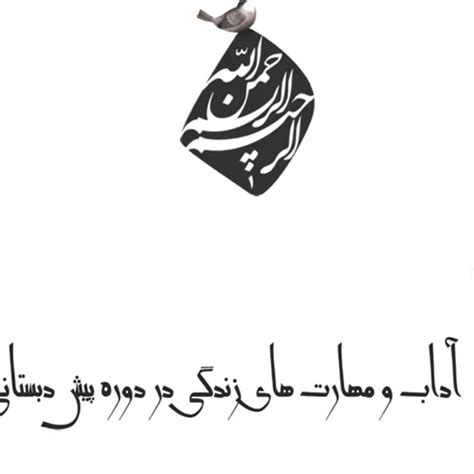 بسم الله الرحمن الرحیم
آداب و مهارت های زندگی در دوره پیش دبستانی